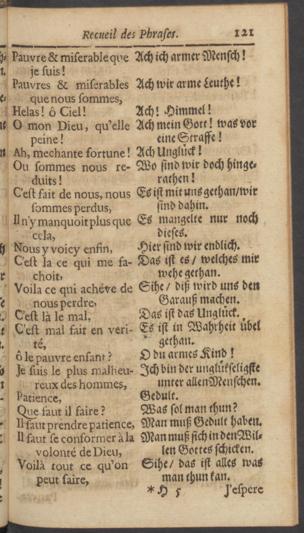 Recueil des Phrases. 121
Pauvre & miserable que Ach ich armer Mensch!
je suis!
Pauvres & miserables Ach wir arme Leuthe!
que nous sommes,
Helas! ô Ciel! Ach! Himmel!
O mon Dieu, qu'elle Ach mein Gott! was vor
peine! eine Straffe!
Ah, mechante fortune! Ach Unglück!
Ou sommes nous re- Wo sind wir doch hinge-
duits! rathen!
C'est fait de nous, nous Es ist mit uns gethan/wir
sommes perdus, sind dahin.
Il n'y manquoit plus que Es mangelte nur noch
cela, dieses.
Nous y voicy enfin, Hier sind wir endlich.
C'est la ce qui me fa- Das ist es / welches mir
choit, wehe gethan.
Voila ce qui achéve de Sihe / diß wird uns den
nous perdre, Garauß machen.
C'est là le mal, Das ist das Unglück.
C'est mal fait en veri- Es ist in Wahrheit übel
té, gethan.
ô le pauvre enfant? O du armes Kind!
Je suis le plus malheu- Ich bin der unglükseligste
reux des hommes, unter allen Menschen.
Patience, Gedult.
Que faut il faire? Was sol man thun?
Il faut prendre patience, Man muß Gedult haben.
Il faut se conformer à la Man muß sich in den Wil-
volonté de Dieu, len Gottes schicken.
Voilà tout ce qu'on Sihe / das ist alles was
peut faire, man thun kan.
* H 5 J'espere